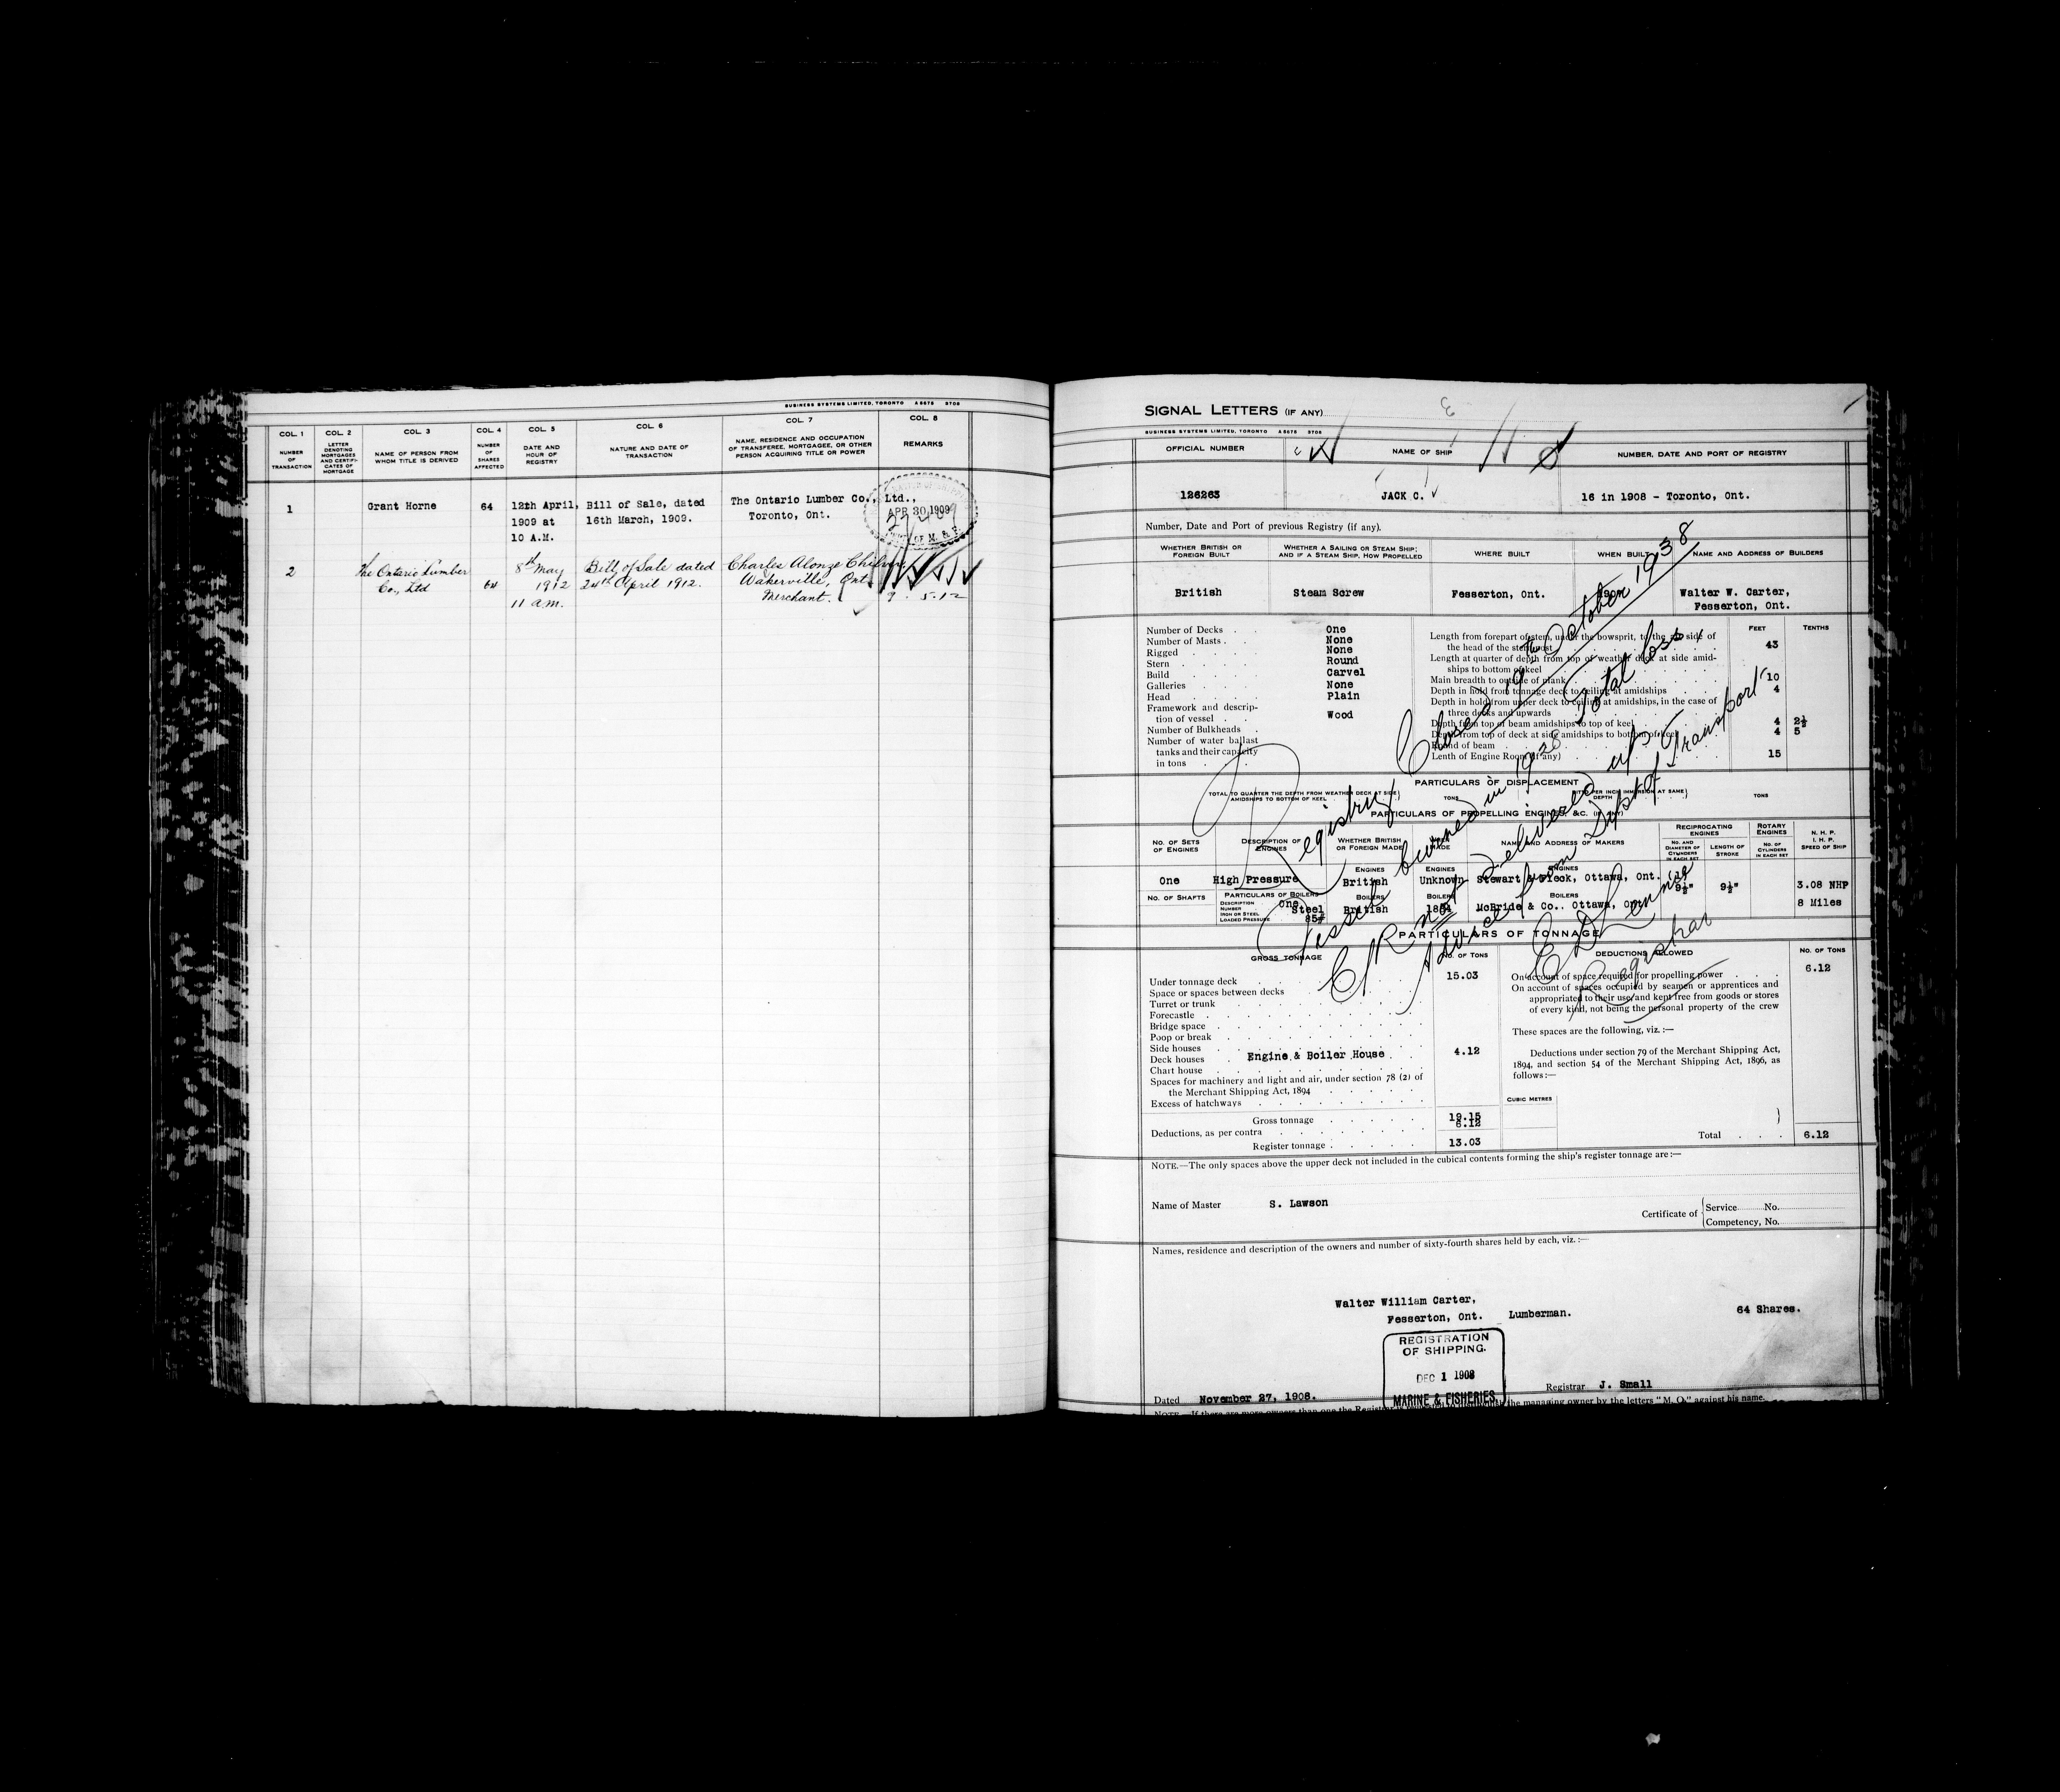 BUSINESS SYSTEMS LIMITED, TORONTO A 5675 STOS
COL. 1
NUMBER OF TRANSACTION
COL. 2
LETTER DENOTING MORTGAGES AND CERTIFICATES OF MORTGAGE
COL. 3
NAME OF PERSON FROM WHOM TITLE IS DERIVED
COL. 4
NUMBER OF SHARES AFFECTED
COL. 5
DATE AND HOUR OF REGISTRY
COL. 6
NATURE AND DATE OF TRANSACTION
COL. 7
NAME, RESIDENCE AND OCCUPATION OF TRANSFEREE, MORTGAGEE, OR OTHER PERSON ACQUIRING TITLE OR POWER
COL. 8
REMARKS
1 Grant Horne 64 12th April, Bill of Sale, dated The Ontario Lumber Co., Ltd.,
1909 at 16th March, 1909. Toronto, Ont.
10 A.M.
APR 30 1909
OF M. & F.
2 The Ontario Lumber 64 8th May Bill of Sale dated Charles Alonzo
Co., Ltd 1912 24th April 1912. Wakerville, Ont
11 a.m. Merchant. 9. 5.12
SIGNAL LETTERS (IF ANY)
BUSINESS SYSTEMS LIMITED, TORONTO A 5675 STOS
OFFICIAL NUMBER NAME OF SHIP NUMBER, DATE AND PORT OF REGISTRY
126263 JACK C. 16 in 1908 - Toronto, Ont.
Number, Date and Port of previous Registry (if any).
WHETHER BRITISH OR FOREIGN BUILT
WHETHER A SAILING OR STEAM SHIP; AND IF A STEAM SHIP, HOW PROPELLED
WHERE BUILT
WHEN BUILT
NAME AND ADDRESS OF BUILDERS
British Steam Screw Fesserton, Ont. Walter W. Carter,
Fesserton, Ont.
Number of Decks One
Number of Masts None
Rigged None
Stern Round
Build Carvel
Galleries None
Head Plain
Framework and description of vessel Wood
Number of Bulkheads
Number of water ballast
tanks and their capacity
in tons
FEET TENTHS
Length from forepart of stem, under the bowsprit, to the aft side of
the head of the sternpost 43
Length at quarter of depth from top of weather deck at side amid-
ships to bottom of keel
Main breadth to outside of plank 10
Depth in hold from tonnage deck to ceiling at amidships 4
Depth in hold from upper deck to ceiling at amidships, in the case of
three decks and upwards
Depth from top of beam amidships to top of keel 4 2½
Depth from top of deck at side amidships to bottom of keel 4 5
Round of beam
Lenth of Engine Room (if any) 15
Registry Closed 19th October 1938
Vessel burned in 1928 Total loss.
C/R not delivered up
Advice from Dept of Transport
Registrar
PARTICULARS OF DISPLACEMENT
TOTAL TO QUARTER THE DEPTH FROM WEATHER DECK AT SIDE AMIDSHIPS TO BOTTOM OF KEEL TONS
DITTO PER INCH IMMERSION AT SAME DEPTH TONS
PARTICULARS OF PROPELLING ENGINES, &C. (IF ANY)
NO. OF SETS OF ENGINES
DESCRIPTION OF ENGINES
WHETHER BRITISH OR FOREIGN MADE
WHEN MADE
NAME AND ADDRESS OF MAKERS
RECIPROCATING ENGINES
NO. AND DIAMETER OF CYLINDERS IN EACH SET
LENGTH OF STROKE
ROTARY ENGINES
NO. OF CYLINDERS IN EACH SET
N. H. P.
I. H. P.
SPEED OF SHIP
ENGINES ENGINES ENGINES
One High Pressure British Unknown Stewart & Fleck, Ottawa, Ont. 9½" 9½" 3.08 NHP
NO. OF SHAFTS PARTICULARS OF BOILERS BOILERS BOILERS BOILERS 8 Miles
DESCRIPTION
NUMBER One
IRON OR STEEL Steel British McBride & Co., Ottawa, Ont.
LOADED PRESSURE 85#
PARTICULARS OF TONNAGE
GROSS TONNAGE NO. OF TONS DEDUCTIONS ALLOWED NO. OF TONS
Under tonnage deck 15.03
Space or spaces between decks
Turret or trunk
Forecastle
Bridge space
Poop or break
Side houses
Deck houses Engine & Boiler House 4.12
Chart house
Spaces for machinery and light and air, under section 78 (2) of
the Merchant Shipping Act, 1894
Excess of hatchways
Gross tonnage 19.15
Deductions, as per contra 6.12
Register tonnage 13.03
On account of space required for propelling power 6.12
On account of spaces occupied by seamen or apprentices and
appropriated to their use, and kept free from goods or stores
of every kind, not being the personal property of the crew
These spaces are the following, viz.:—
Deductions under section 79 of the Merchant Shipping Act,
1894, and section 54 of the Merchant Shipping Act, 1896, as
follows:—
CUBIC METRES
Total 6.12
NOTE.—The only spaces above the upper deck not included in the cubical contents forming the ship's register tonnage are:—
Name of Master S. Lawson
Certificate of Service No.
Competency, No.
Names, residence and description of the owners and number of sixty-fourth shares held by each, viz.:—
Walter William Carter,
Fesserton, Ont. Lumberman. 64 Shares.
REGISTRATION
OF SHIPPING.
DEC 1 1908
MARINE & FISHERIES.
Dated November 27, 1908. Registrar J. Small
NOTE.—If there are more owners than one the Registrar the managing owner by the letters "M. O." against his name.